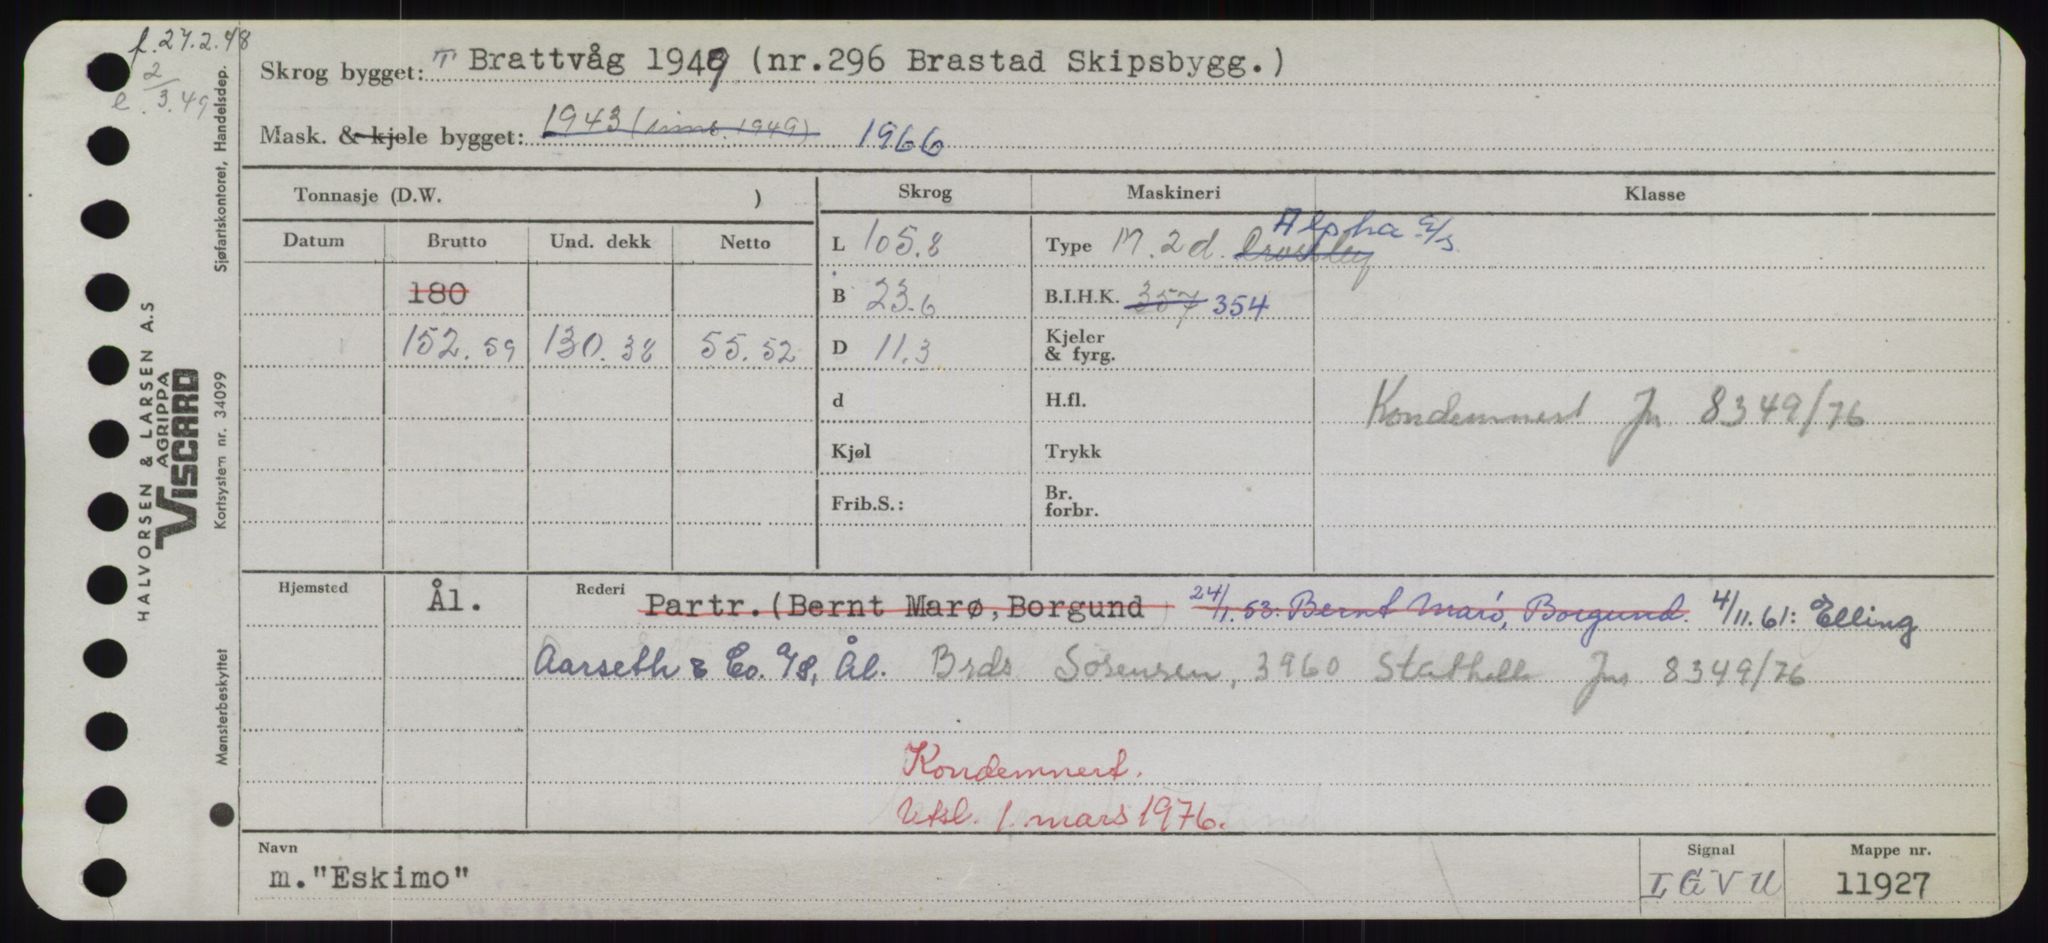 f. 27.2.48
2/3.49
Skrog bygget: T Brattvåg 1949 (nr.296 Brastad Skipsbygg.)
Mask. & kjele bygget: 1943 (inns. 1949) 1966
Tonnasje (D.W. )
Skrog
Maskineri
Klasse
Datum
Brutto
Und. dekk
Netto
180
152.59 130.38 55.52
L 105.8
B 23.6
D 11.3
d
Kjøl
Frib.S.:
Type M. 2 d. Crossley Alpha a/s
B.I.H.K. 357 354
Kjeler
& fyrg.
H.fl.
Trykk
Br.
forbr.
Kondemnert Jn 8349/76
Hjemsted
Ål.
Rederi
Partr. (Bernt Marø, Borgund) 24/1.53: Bernt Marø, Borgund. 4/11.61: Elling
Aarseth & Co. A/S, Ål. Brds Sørensen, 3960 Stathelle Jns 8349/76
Kondemnert.
Utsl. 1. mars 1976.
Navn
m."Eskimo"
Signal
LGVU
Mappe nr.
11927
HALVORSEN & LARSEN A.S
AGRIPPA
VISCARD
Mønsterbeskyttet
Kortsystem nr. 34099
Sjøfartskontoret, Handelsdep.